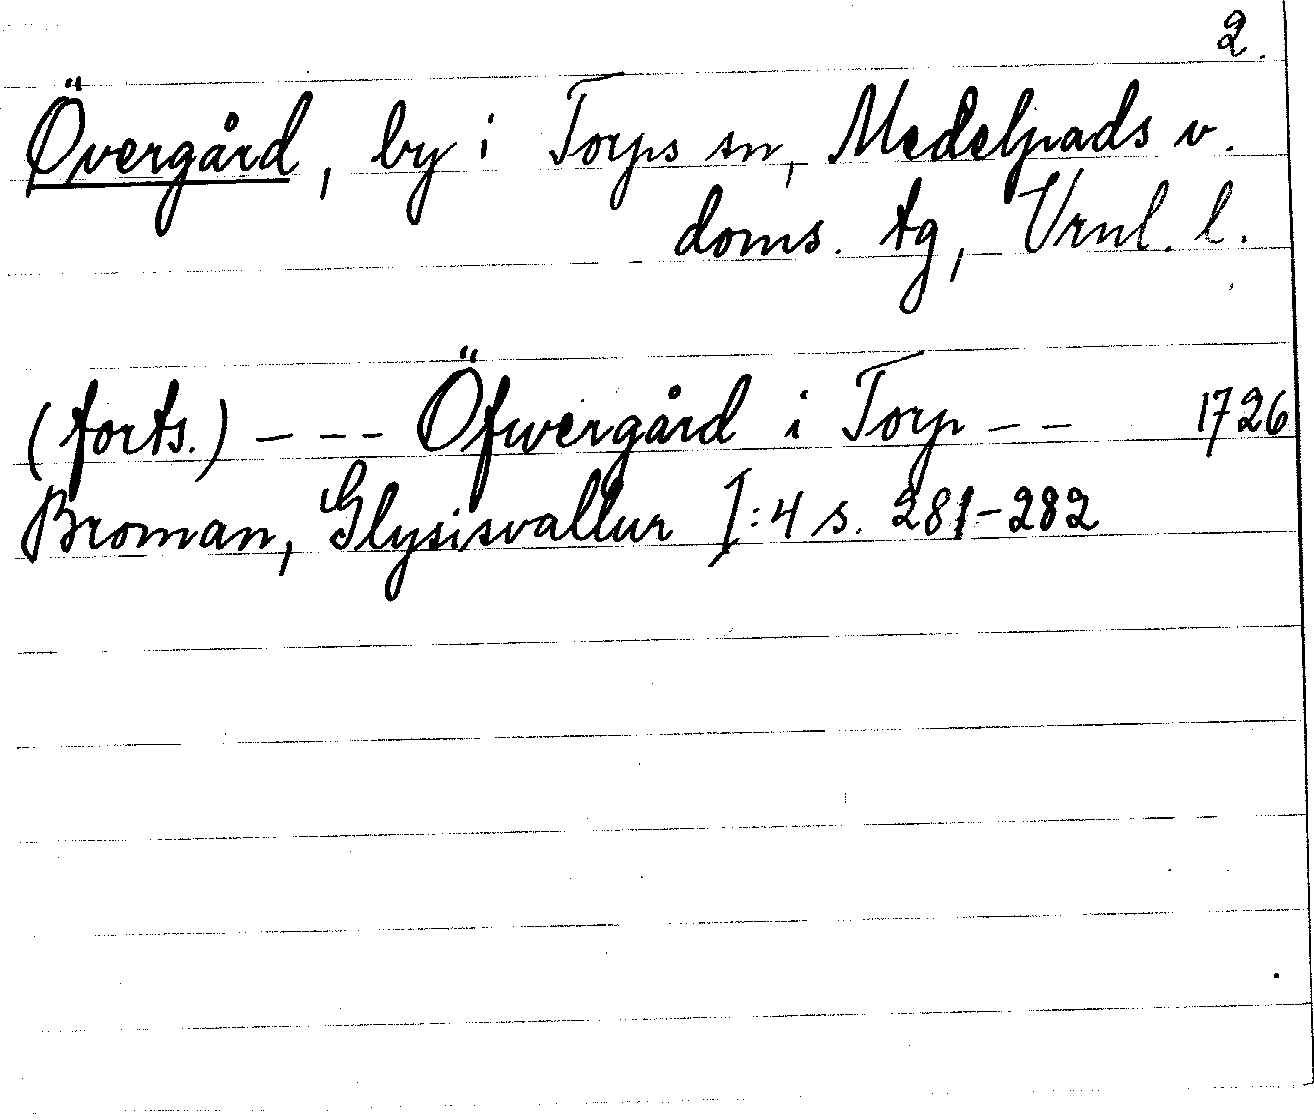 2.
Övergård, by i Torps sn, Medelpads v.
doms. tg, Vrnl. l.
(forts.) - - - Öfwergård i Torp - - 1726
Broman, Glysisvallur I:4 s. 281-282